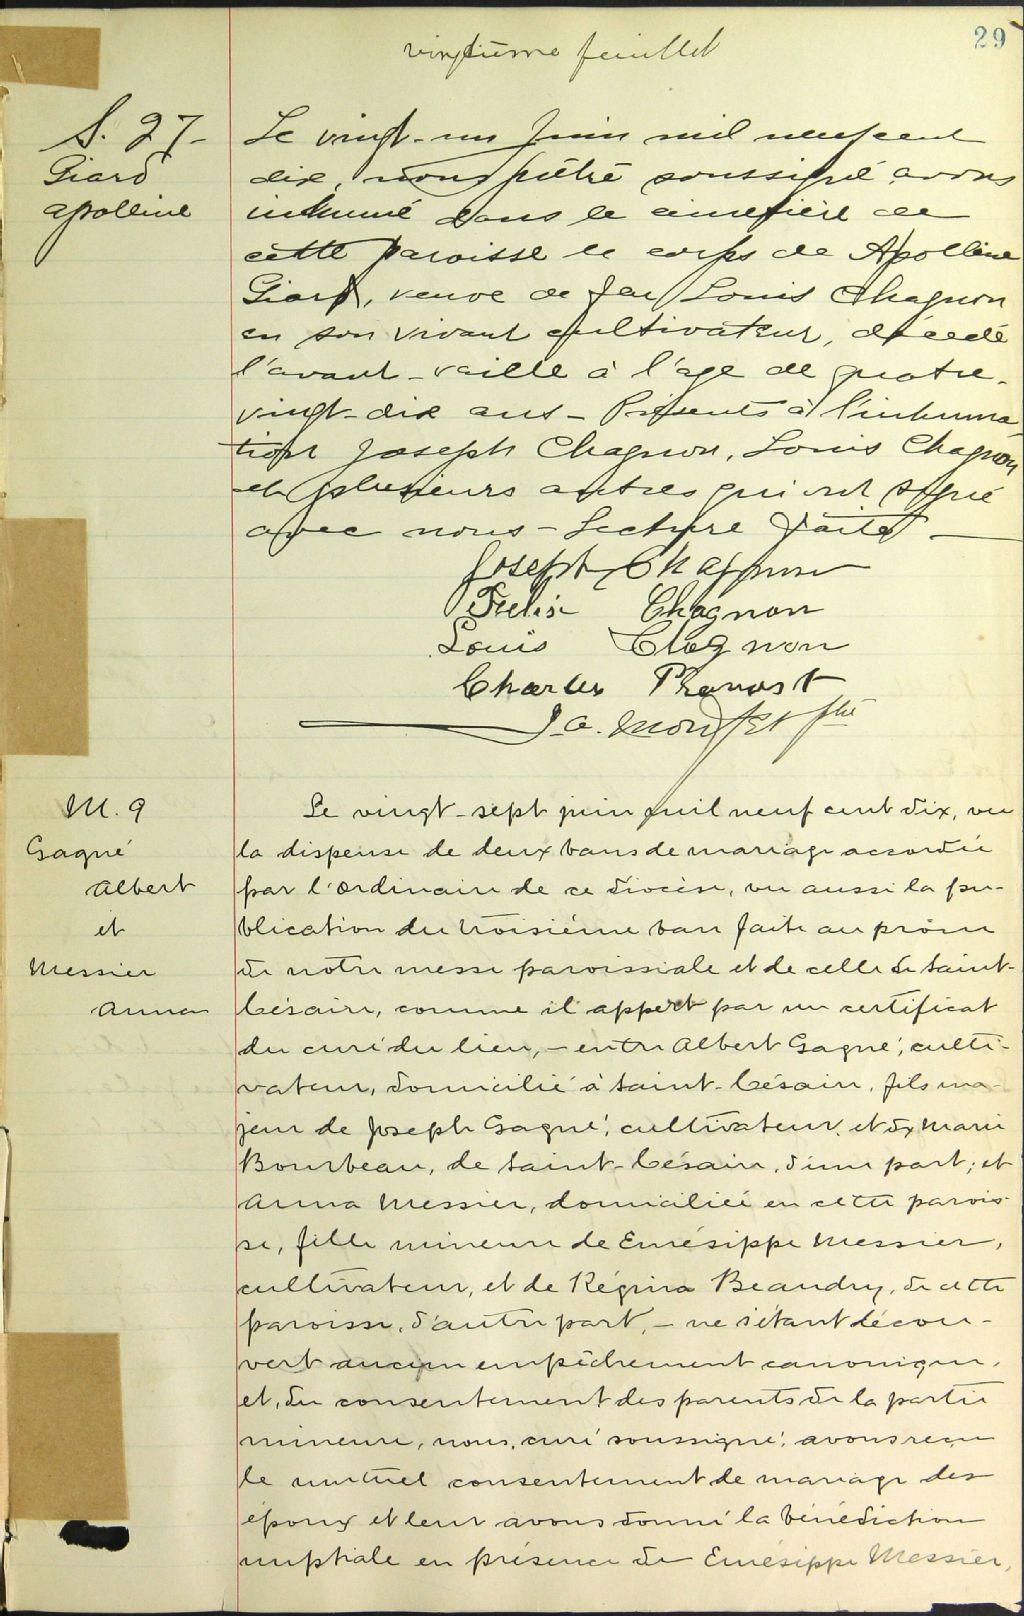 vingtième feuillet
29
S. 27-
Giard
apolline
Le vingt-un Juin mil neuf cent
dix, nous prêtre soussigné avons
inhumé dans le cimetière de
cette paroisse le corps de Apolline
Giard, veuve de feu Louis Chagnon
en son vivant cultivateur, décédé
l'avant-veille à l'age de quatre-
vingt-dix ans - Présents à l'inhuma-
tion Joseph Chagnon, Louis Chagnon
et plusieurs autres qui ont signé
avec nous - Lecture faite -
Joseph Chagnon
Felix Chagnon
Louis Chagnon
Charles Provost
J. A. ptre
M. 9
Gagné
Albert
et
Messier
Anna
Le vingt-sept juin mil neuf cent dix, vu
la dispense de deux bans de mariage accordée
par l'ordinaire de ce diocèse, vu aussi la pu-
blication du troisième ban faite au prône
de notre messe paroissiale et de celle de Saint-
Césaire, comme il appert par un certificat
du curé du lieu, - entre Albert Gagné, culti-
vateur, domicilié à Saint-Césaire, fils ma-
jeur de Joseph Gagné, cultivateur, et de Marie
Bourbeau, de Saint-Césaire, d'une part; et
Anna Messier, domiciliée en cette parois-
se, fille mineure de Emésippe Messier,
cultivateur, et de Régina Beaudry, de cette
paroisse, d'autre part, - ne s'étant décou-
vert aucun empêchement canonique,
et, du consentement des parents de la partie
mineure, nous, curé soussigné, avons reçu
le mutuel consentement de mariage des
époux et leur avons donné la bénédiction
nuptiale en présence de Emésippe Messier,